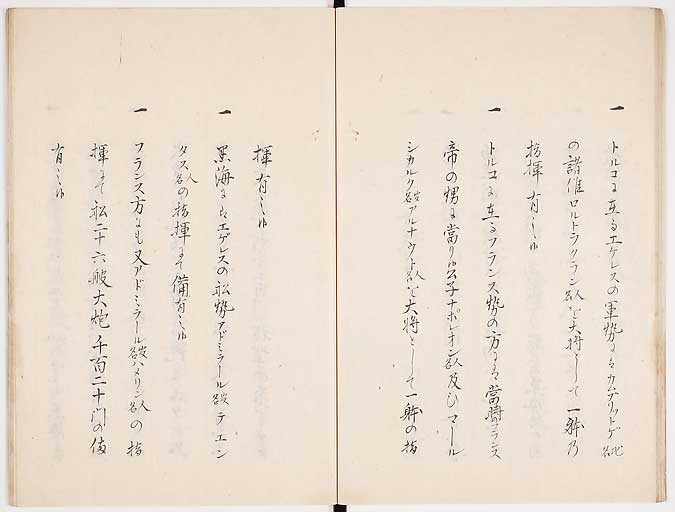 一 トルコに在るエゲレスの軍勢にはカムブリットゲ地名
の諸侯ロルトラクラン人名を大将にして一躰乃
指揮有之候
一 トルコに在るフランス勢の方には當時フランス
帝の甥に當り候公子ナポレオン人名及ひマール
シカルク官名アルナウト人名を大将として一躰の指
揮有之候
一 黒海にはエゲレスの船勢アドミラール官名テエン
タス人名の指揮にて備有之候
一 フランス方にも又アドミラール官名ハメリン人名の指
揮にて船二十六艘大炮千百二十門の備
有之候